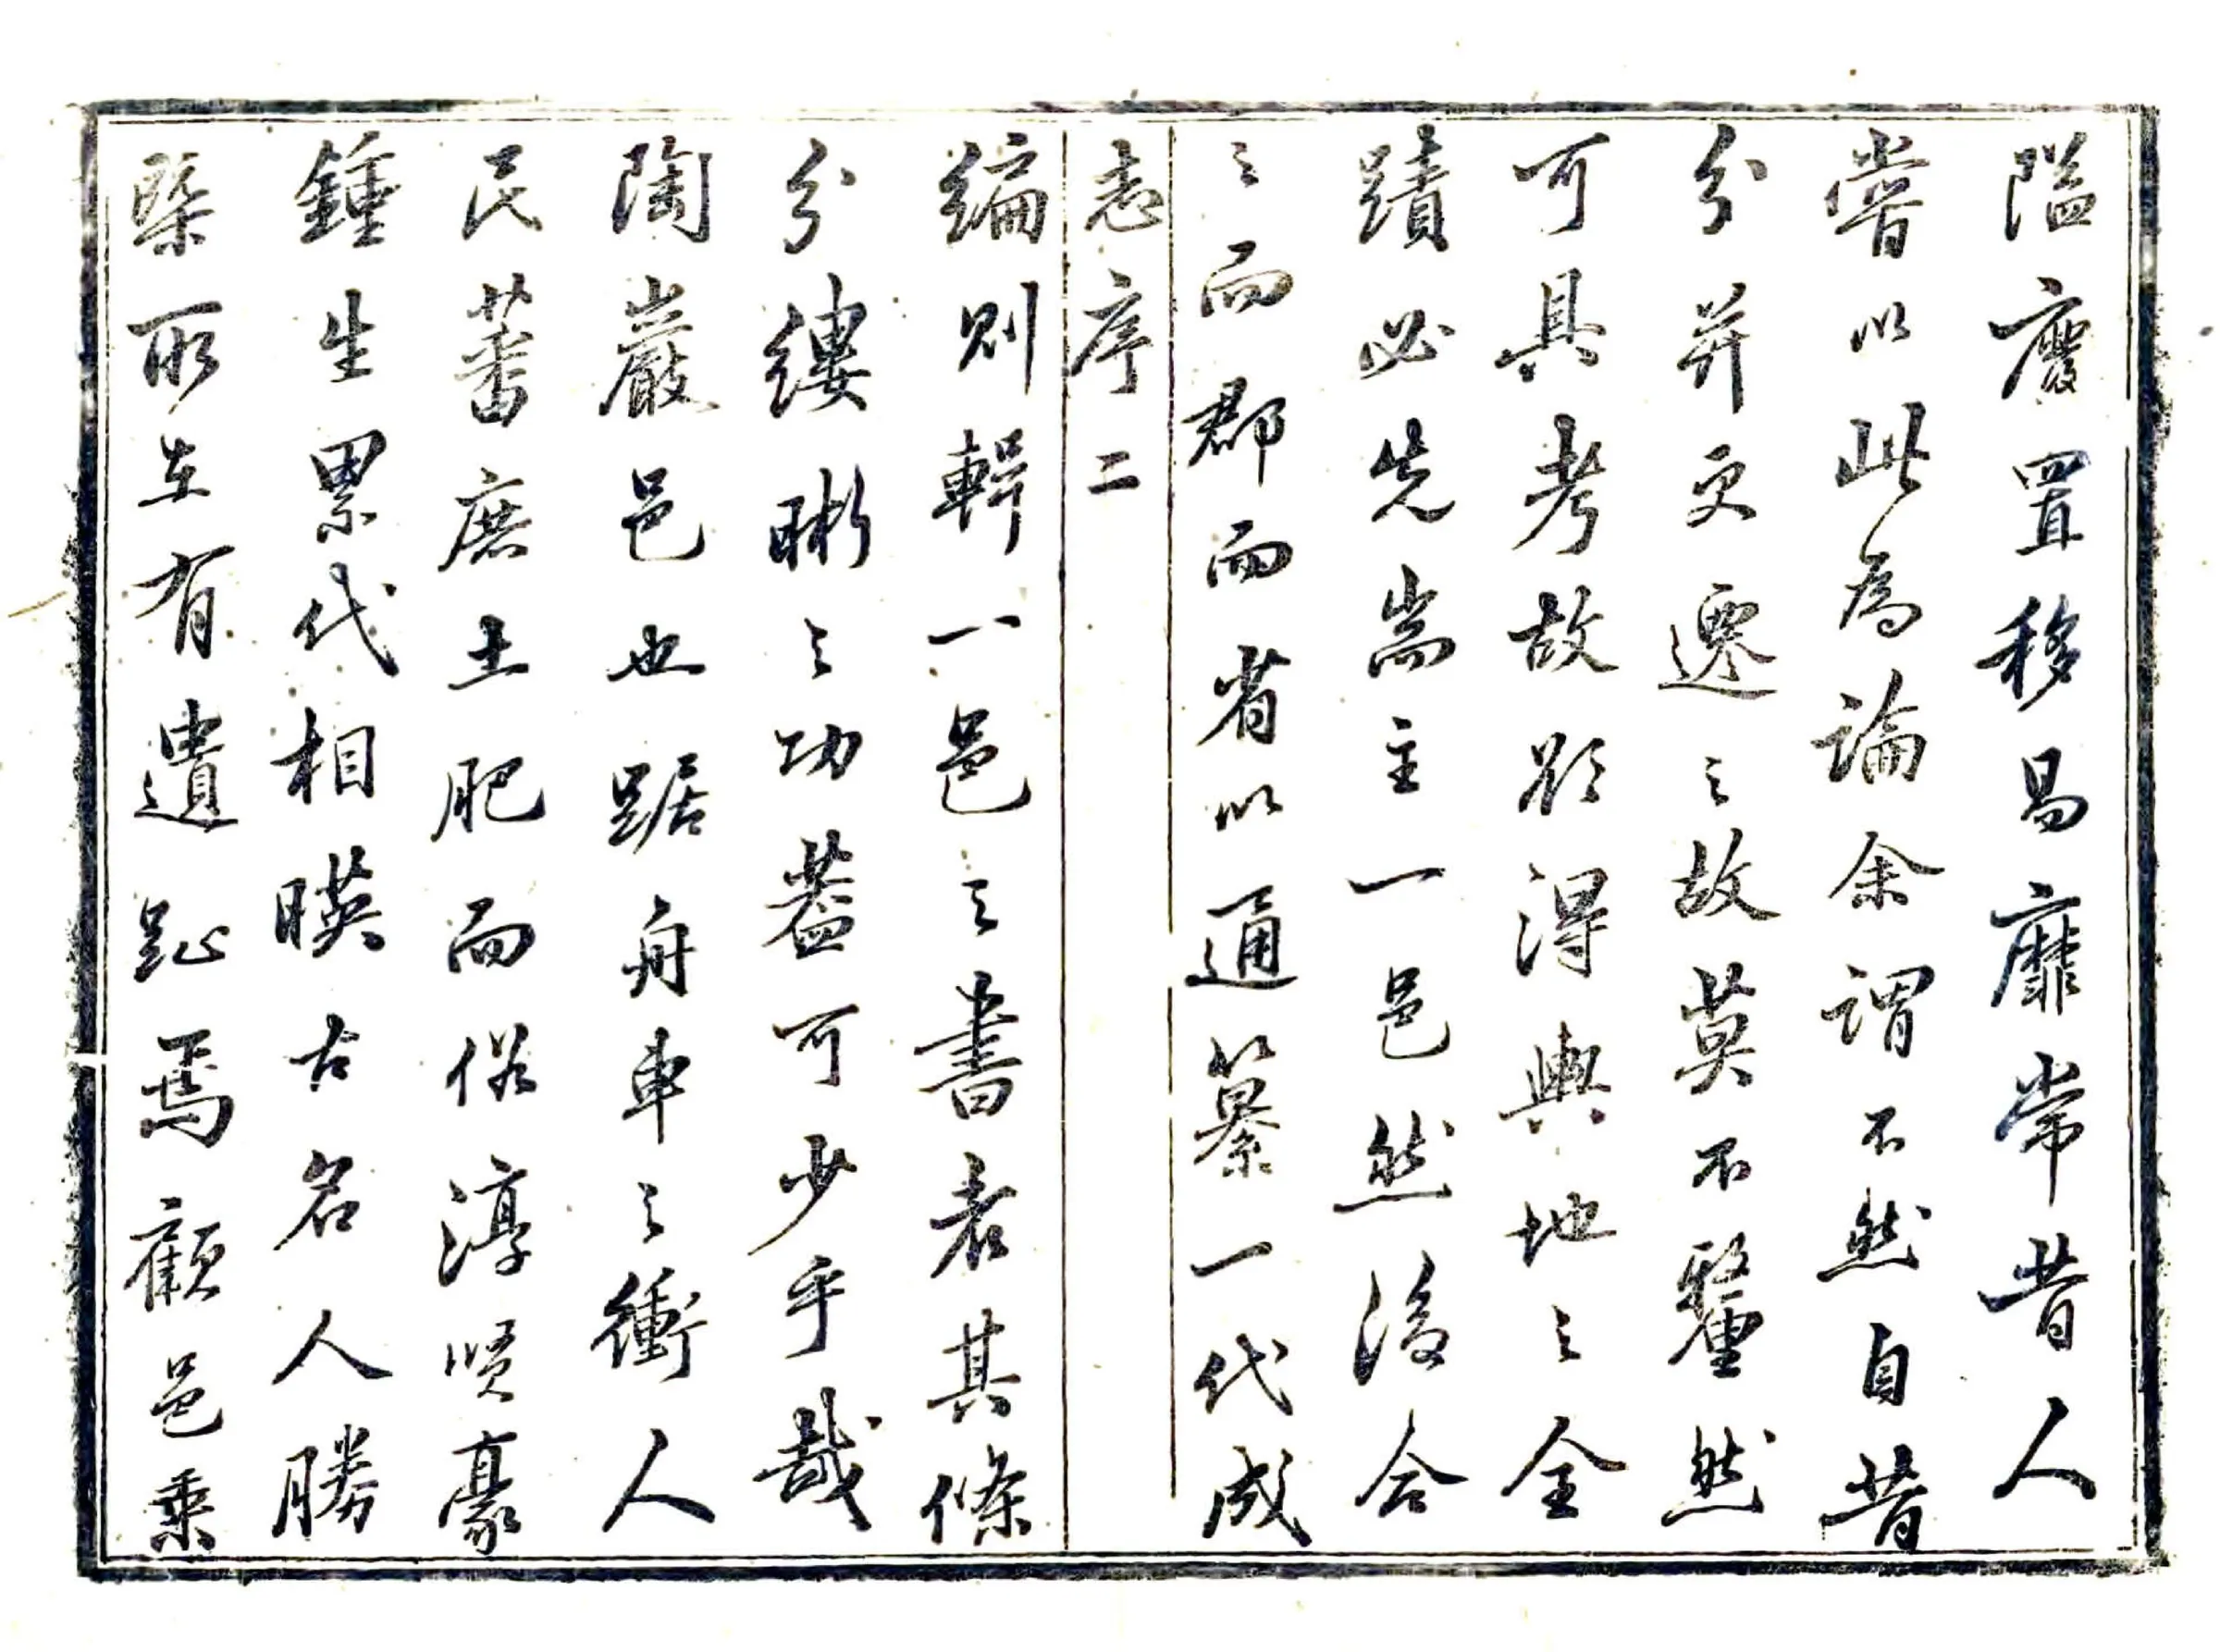 隘廢置移易靡常昔人
嘗以此為論余謂不然自昔
分并更遷之故莫不釐然
可具考故欲得輿地之全
蹟必先耑主一邑然後合
之而郡而省以通纂一代成
志序二
編則輯一邑之書者其條
分縷晰之功蓋可少乎哉
陶巖邑也踞舟車之衝人
民蕃庶土肥而俗淳賢豪
鍾生累代相暎古名人勝
槩所在有遺趾焉顧邑乗